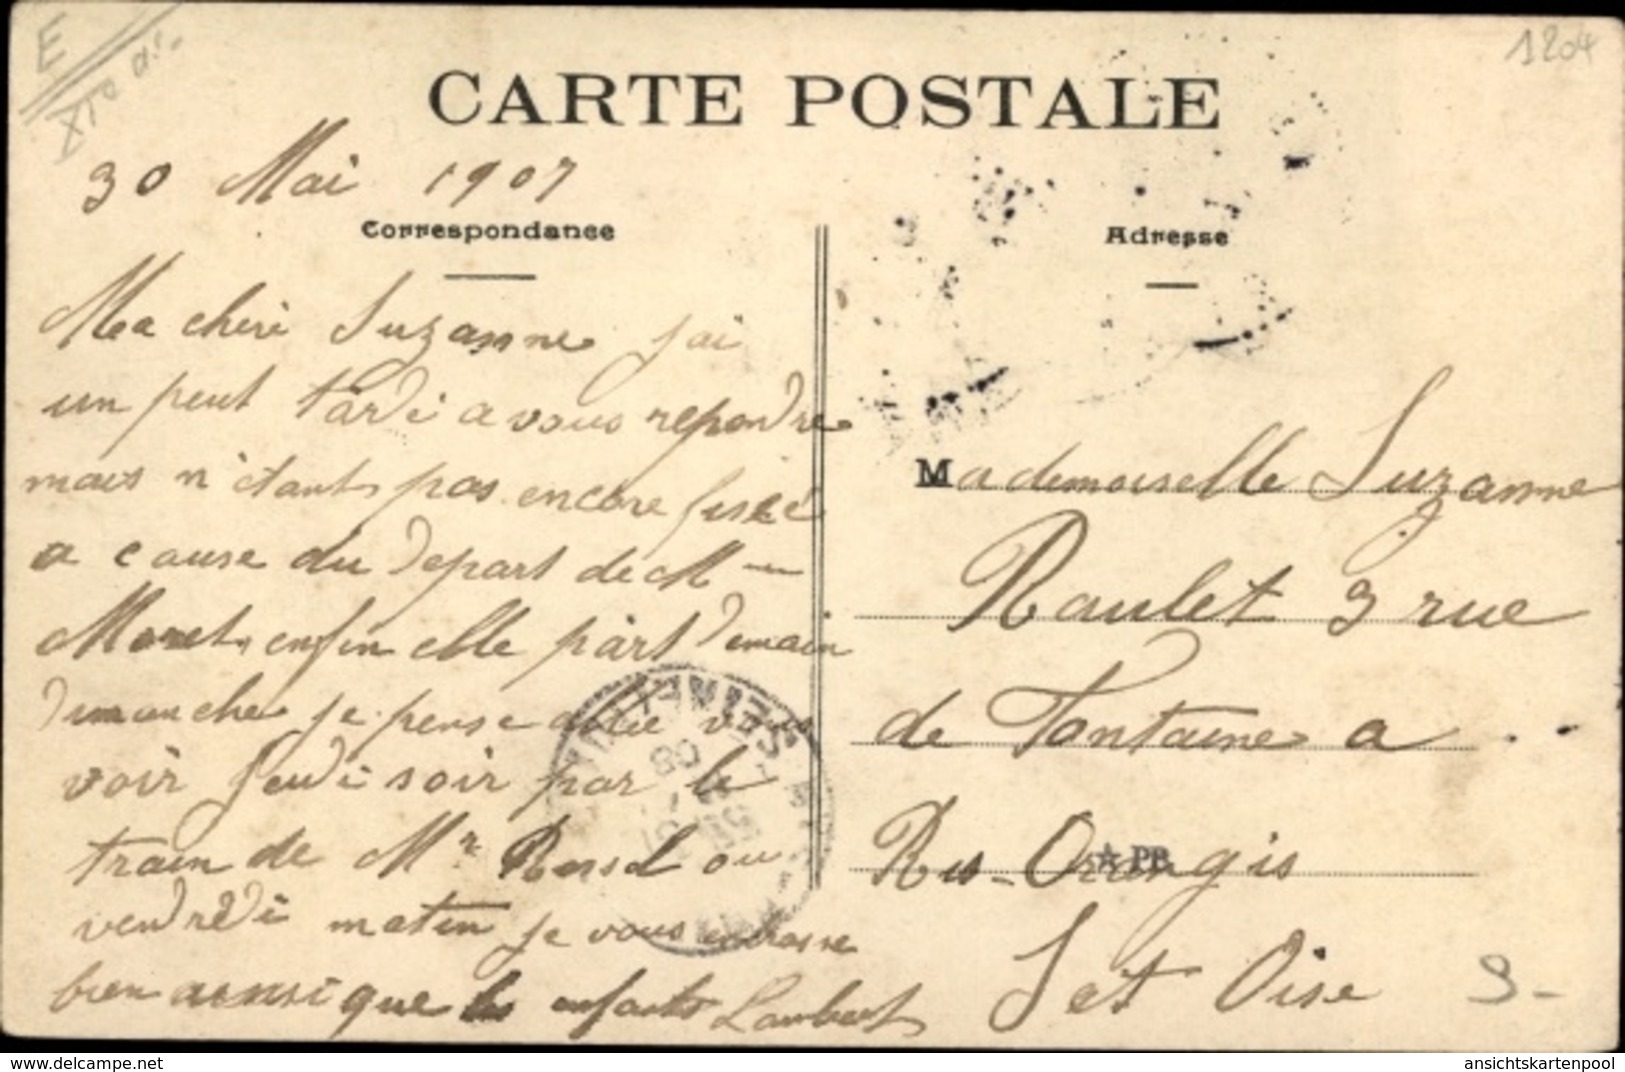 E
XIe a!.
1204
CARTE POSTALE
30 Mai 1907
Correspondance
Adresse
Ma cheri Suzanne jai
un peut tardé a vous repondre
mais n'étant pas encore fisée
a cause du depart de M
Moret, enfin elle part demain
dimanche je pense aller vous
voir jeudi soir par le
train de Mr ou
vendredi maten je vous embrasse
bien ainsi que les enfants Lambert
Mademoiselle Suzanne
Raulet 3 rue
de Fontaine a
Ris-Orangis
PP
Set Oise
9-
ansichtskartenpool